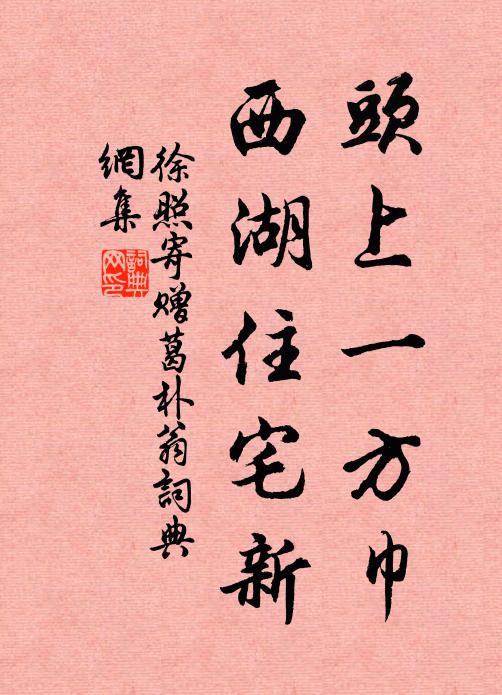 頭上一方巾
西湖住宅新
徐照寄贈葛朴翁詞典
網集
詞典
网印